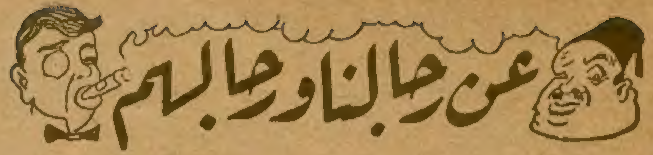 عن رجالنا ورجالهم